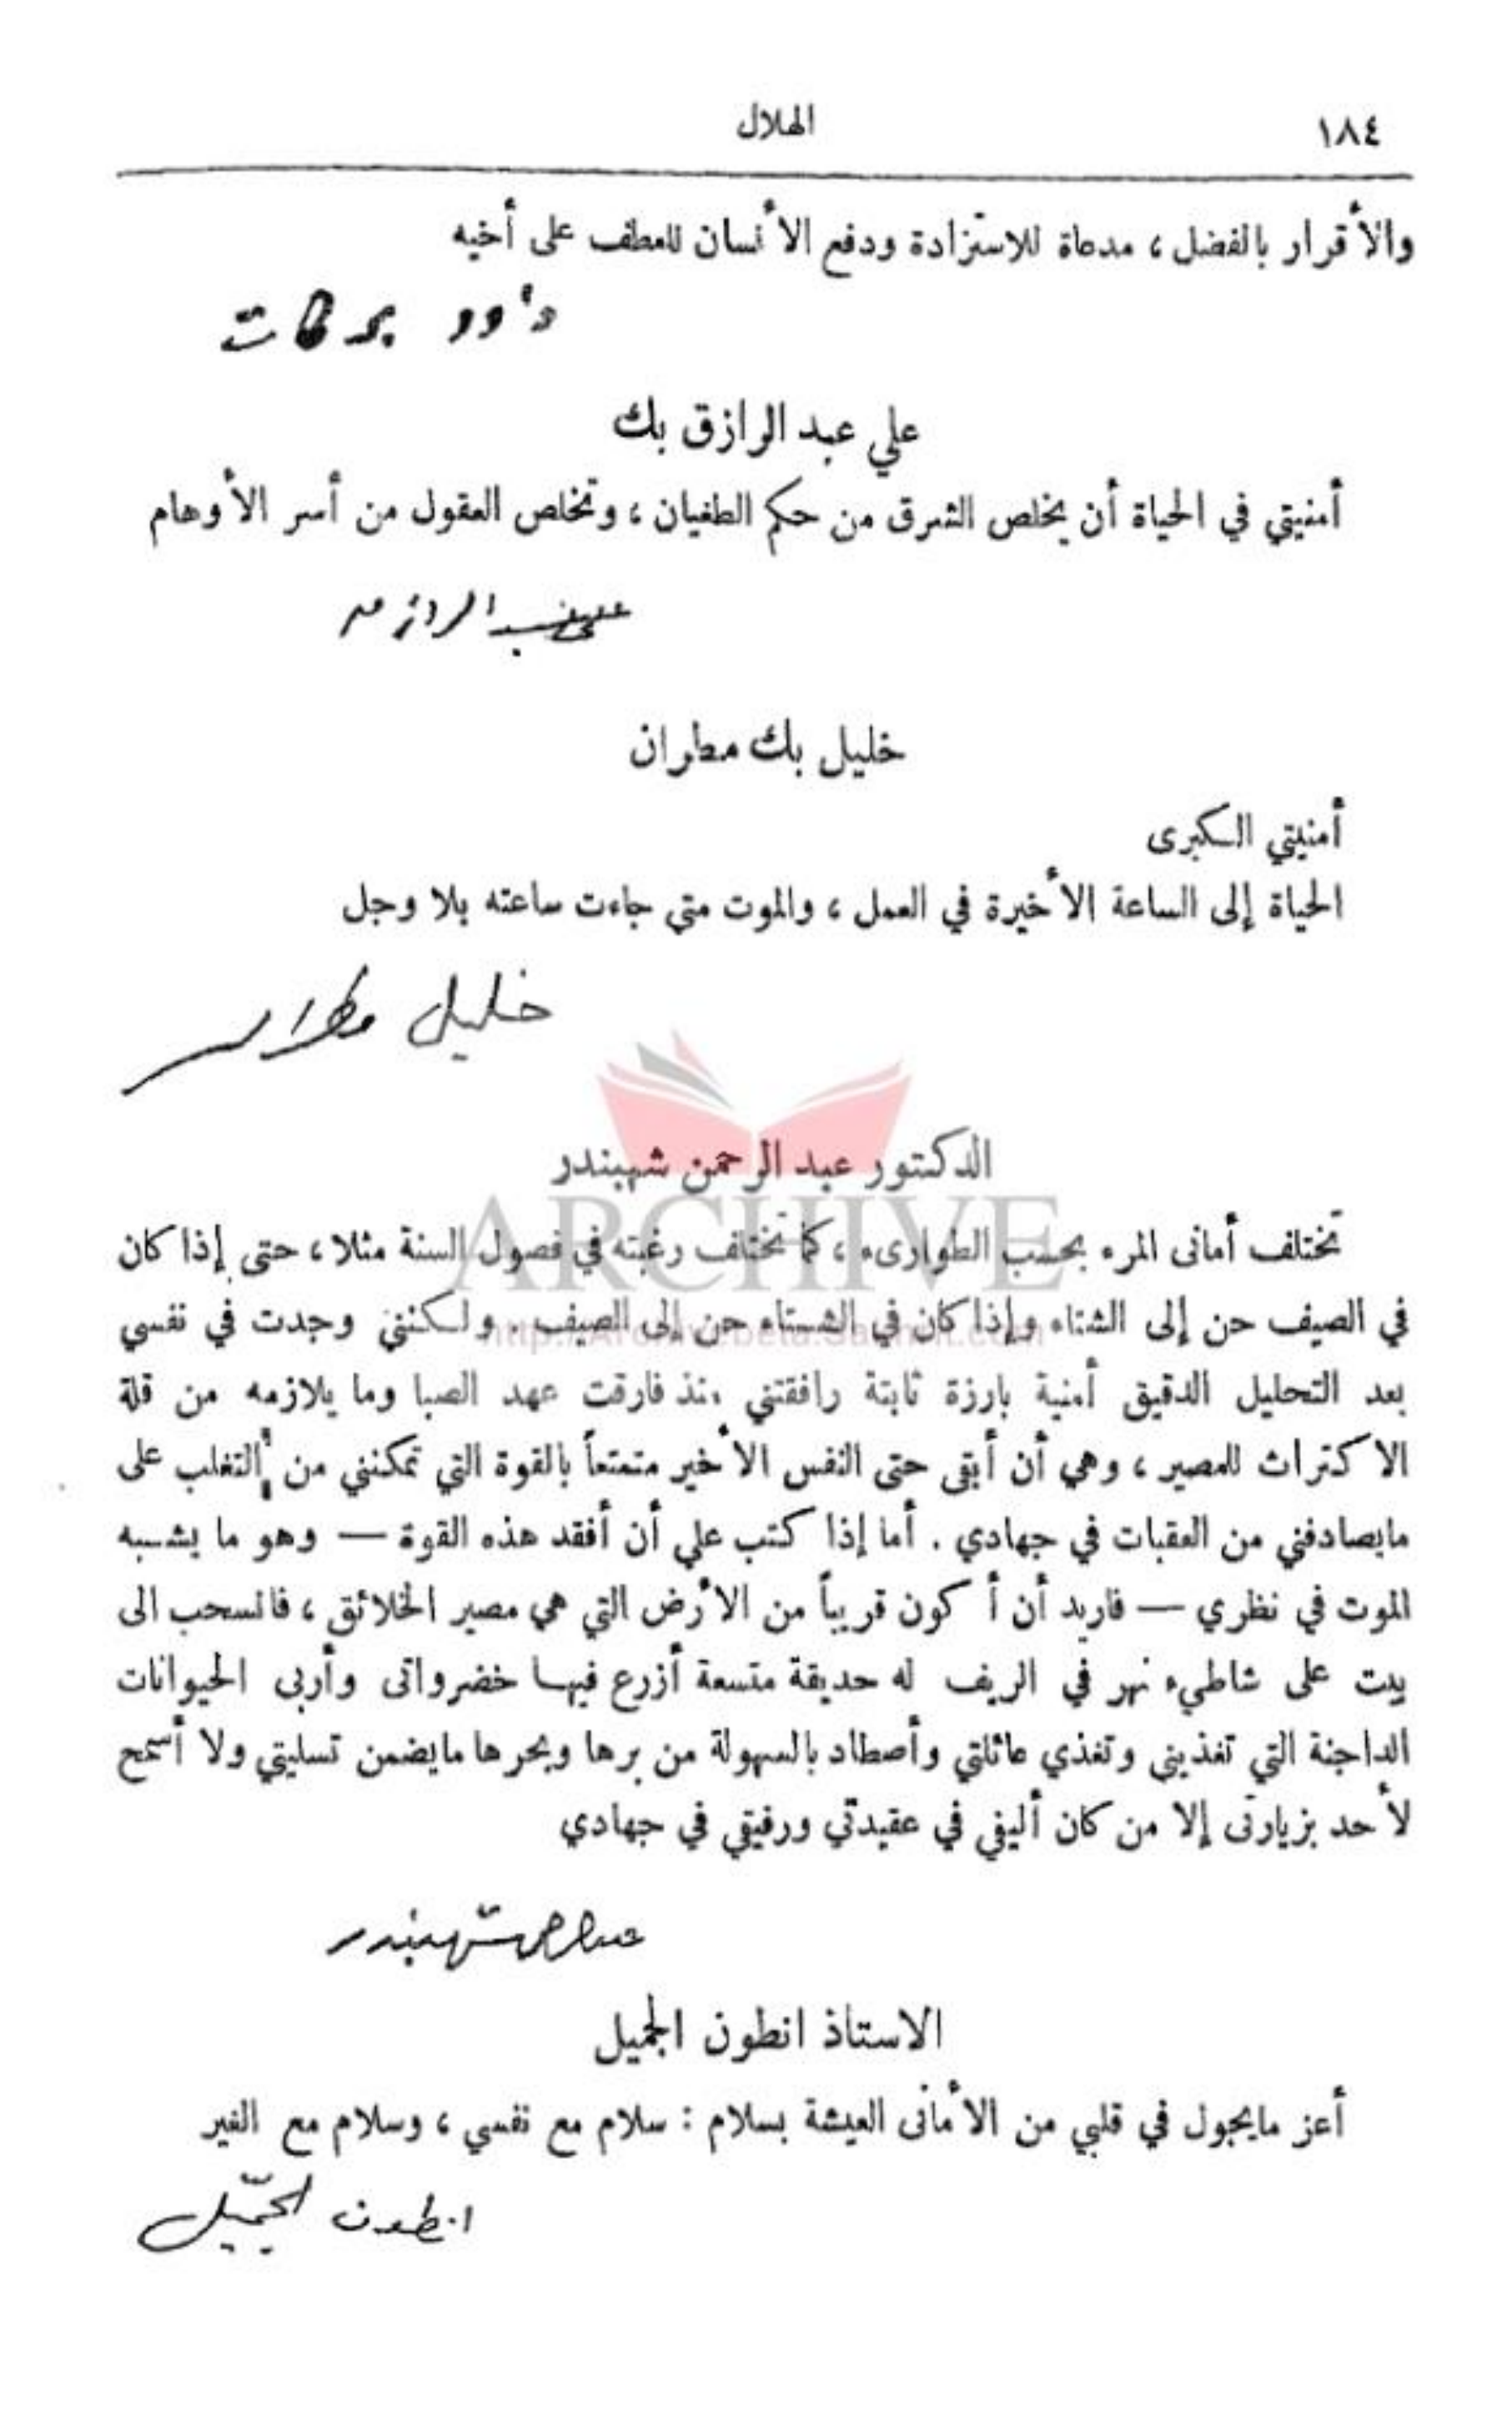 ١٨٤
الهلال
والأقرار بالفضل ، مدعاة للاستزادة ودفع الأنسان للعطف على أخيه
داود بركات
علي عبد الرازق بك
أمنيتي في الحياة أن يخلص الشرق من حكم الطغيان ، وتخلص العقول من أسر الأوهام
علي عبد الرازق
خليل بك مطران
أمنيتي الكبرى
الحياة إلى الساعة الأخيرة في العمل ، والموت متى جاءت ساعته بلا وجل
خليل مطران
الدكتور عبد الرحمن شهبندر
ARCHIVE
http://Archivebeta.Sakhrit.com
تختلف أمانى المرء بحسب الطوارىء ، كما تختلف رغبته في فصول السنة مثلا ، حتى إذا كان
في الصيف حن إلى الشتاء وإذا كان في الشتاء حن إلى الصيف . ولكنني وجدت في نفسي
بعد التحليل الدقيق أمنية بارزة ثابتة رافقتني منذ فارقت عهد الصبا وما يلازمه من قلة
الاكتراث للمصير ، وهي أن أبقى حتى النفس الأخير متمتعاً بالقوة التي تمكنني من التغلب على
مايصادفني من العقبات في جهادي . أما إذا كتب علي أن أفقد هذه القوة — وهو ما يشبه
الموت في نظري — فاريد أن أكون قريباً من الأرض التي هي مصير الخلائق ، فانسحب الى
بيت على شاطيء نهر في الريف له حديقة متسعة أزرع فيها خضرواتى وأربى الحيوانات
الداجنة التي تغذيني وتغذي عائلتي وأصطاد بالسهولة من برها وبحرها مايضمن تسليتي ولا أسمح
لأحد بزيارتى إلا من كان أليفي في عقيدتي ورفيقي في جهادي
عبد الرحمن شهبندر
الاستاذ انطون الجميل
أعز مايجول في قلبي من الأمانى العيشة بسلام : سلام مع نفسي ، وسلام مع الغير
انطون الجميّل